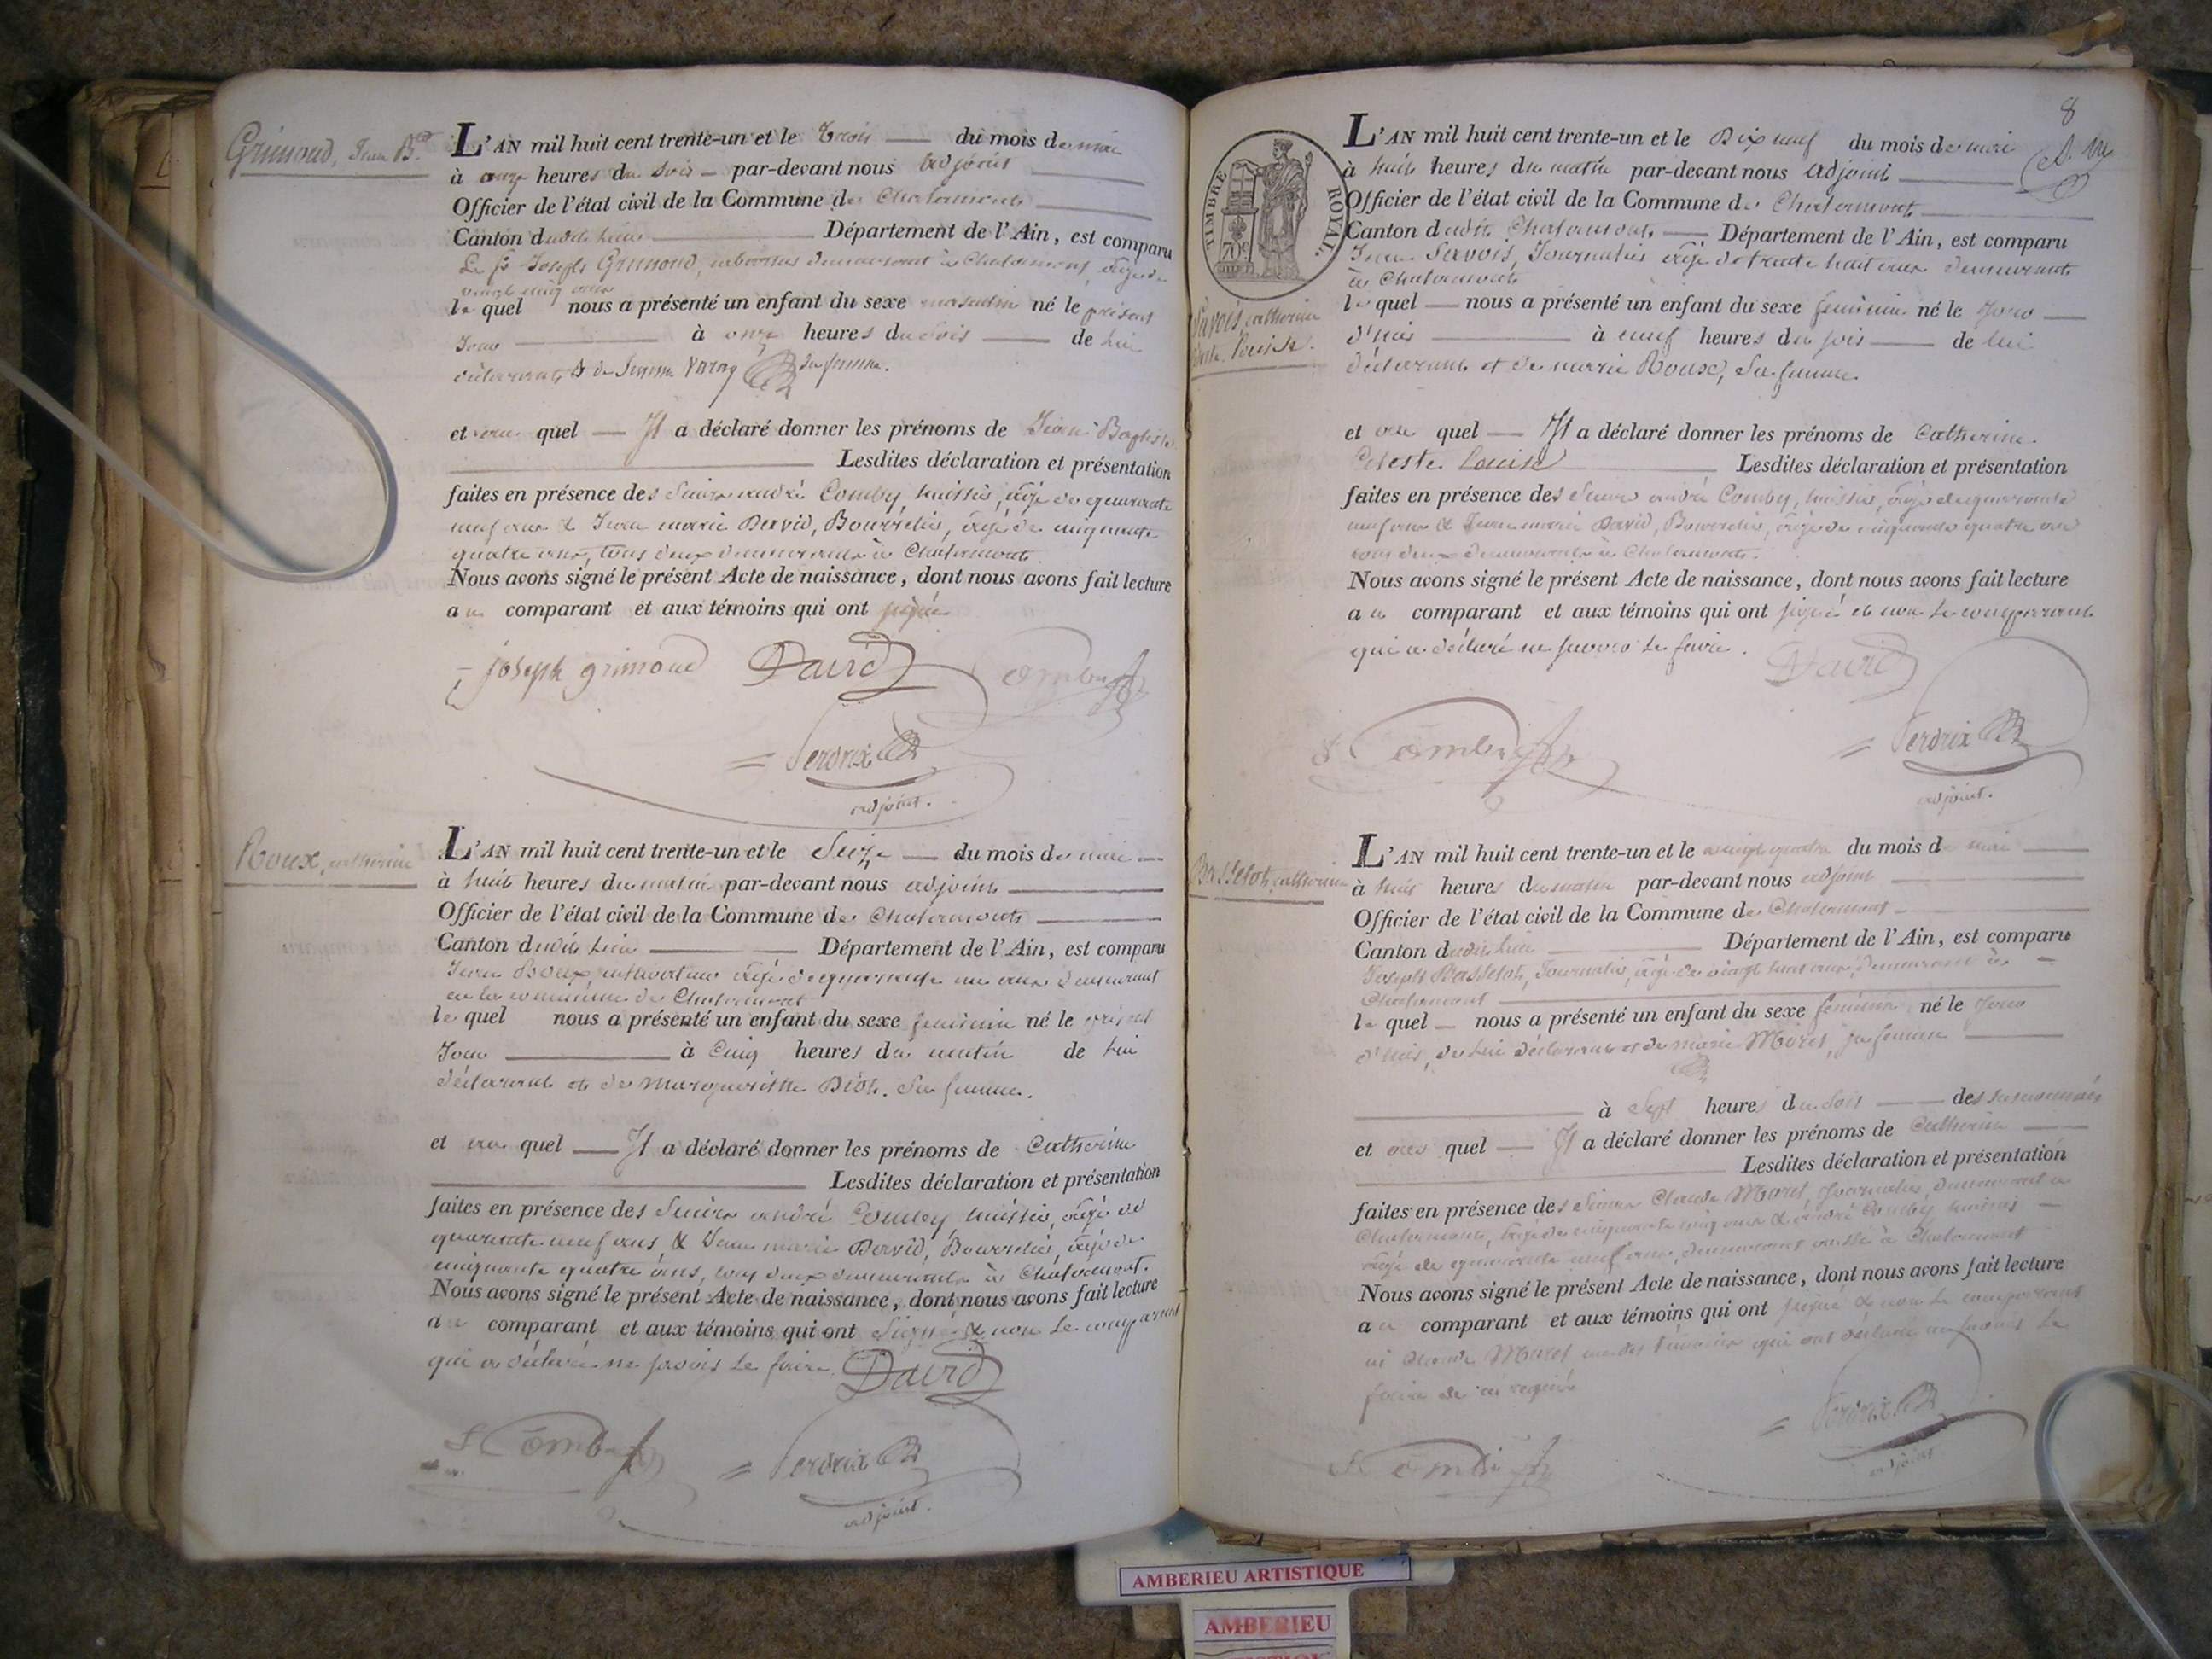 Grimoud, Jean Bte
L'AN mil huit cent trente-un et le trois du mois de mai
à onze heures du soir par-devant nous adjoint
Officier de l'état civil de la Commune de Chalamont
Canton dudit lieu Département de l'Ain, est comparu
Le Sr Joseph Grimoud, demeurant à Chalamont, âgé de
vingt cinq ans
le quel nous a présenté un enfant du sexe masculin né le présent
jour à onze heures du soir de lui
déclarant & de Varay sa femme.
et au quel Il a déclaré donner les prénoms de Jean-Baptiste
Lesdites déclaration et présentation
faites en présence des Sieurs andré Comby huissier, âgé de quarante
neuf ans & Jean marie David, Bourrelier, âgé de cinquante
quatre ans, tous deux demeurants à Chalamont
Nous avons signé le présent Acte de naissance, dont nous avons fait lecture
au comparant et aux témoins qui ont signé
joseph grimoud David Comby
Perdrix
adjoint.
Roux, catherine
L'AN mil huit cent trente-un et le Seize du mois de mai
à huit heures du matin par-devant nous adjoint
Officier de l'état civil de la Commune de Chalamont
Canton dudit lieu Département de l'Ain, est comparu
Jean Roux, cultivateur âgé de quarante un ans demeurant
en la commune de Chalamont
le quel nous a présenté un enfant du sexe feminin né le présent
jour à Cinq heures du matin de lui
déclarant et de Margueritte Diot. Sa femme.
et au quel Il a déclaré donner les prénoms de Catherine
Lesdites déclaration et présentation
faites en présence des Sieurs andré Comby huissier, âgé de
quarante neuf ans, & Jean marie David, Bourrelier, âgé de
cinquante quatre ans, tous deux demeurants à Chalamont.
Nous avons signé le présent Acte de naissance, dont nous avons fait lecture
au comparant et aux témoins qui ont Signé & non le comparant
qui a déclaré ne savoir le faire. David
Comby Perdrix
adjoint.
8
TIMBRE ROYAL
70c
Savois, catherine
Louise.
L'AN mil huit cent trente-un et le Dix neuf du mois de mai
à huit heures du matin par-devant nous adjoint
Officier de l'état civil de la Commune de Chalamont
Canton dudit Chalamont Département de l'Ain, est comparu
Jean Savois, Journalier âgé de trente huit ans demeurant
à Chalamont
le quel nous a présenté un enfant du sexe feminin né le jour
d'hier à neuf heures du soir de lui
déclarant et de marie Roux, sa femme
et au quel Il a déclaré donner les prénoms de Catherine.
Celeste. Louise Lesdites déclaration et présentation
faites en présence des Sieurs andré Comby, huissier, âgé de quarante
neuf ans & Jean marie David, Bourrelier, âgé de cinquante quatre ans
tous deux demeurants à Chalamont.
Nous avons signé le présent Acte de naissance, dont nous avons fait lecture
au comparant et aux témoins qui ont signé et non le comparant
qui a déclaré ne savoir le faire. David
Comby Perdrix
adjoint.
Basselot, catherine
L'AN mil huit cent trente-un et le vingt quatre du mois d mai
à huit heures du matin par-devant nous adjoint
Officier de l'état civil de la Commune de Chalamont
Canton dudit lieu Département de l'Ain, est comparu
Joseph Basselot, Journalier, âgé de vingt huit ans, demeurant à
Chalamont
le quel nous a présenté un enfant du sexe feminin né le jour
d'hier, de lui déclarant et de marie Morel, sa femme
à Sept heures du soir des susnommés
et au quel Il a déclaré donner les prénoms de Catherine
Lesdites déclaration et présentation
faites en présence des Sieurs Claude Morel, Journalier, demeurant à
Chalamont, âgé de cinquante cinq ans & andré Comby huissier
âgé de quarante neuf ans, demeurant aussi à Chalamont
Nous avons signé le présent Acte de naissance, dont nous avons fait lecture
au comparant et aux témoins qui ont signé & non le comparant
ni Claude Morel un des témoins qui ont déclaré ne savoir le
faire de ce requis
Comby Perdrix
adjoint
AMBERIEU ARTISTIQUE
AMBERIEU